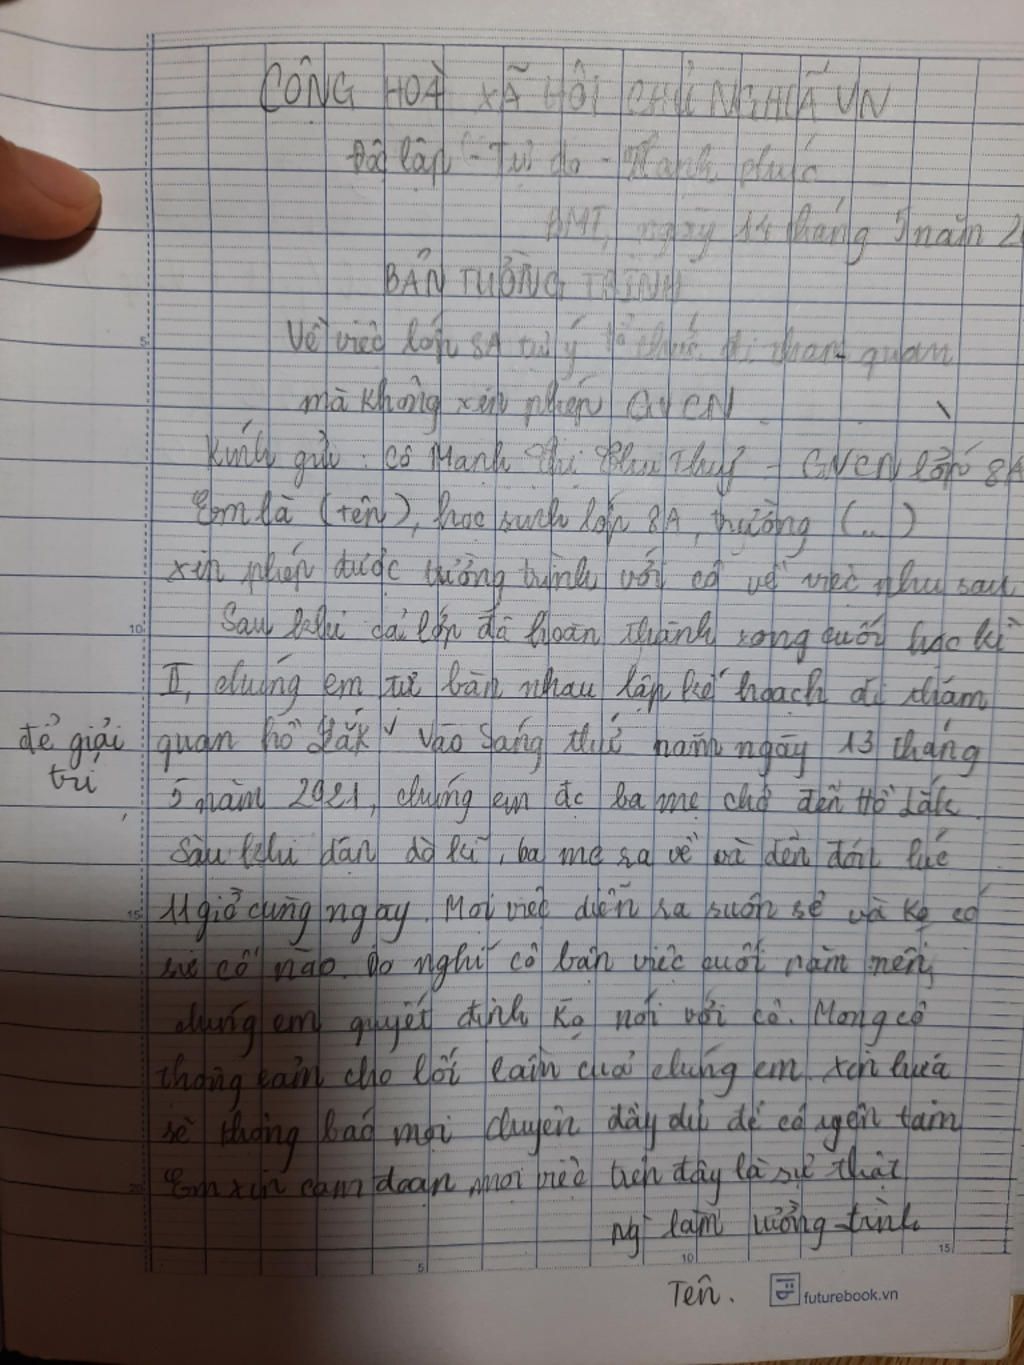 CỘNG HOÀ XÃ HỘI CHỦ NGHĨA VN
Độc lập - Tự do - Hạnh phúc
BMT, ngày 14 tháng 5 năm 2
BẢN TƯỜNG TRÌNH
Về việc lớp 8A tự ý tổ chức đi tham quan
mà không xin phép GVCN
Kính gửi : Cô Mạnh Thị Thu Thuỷ - GVCN lớp 8A
Em là (tên), học sinh lớp 8A, trường (...)
xin phép được tường trình với cô về việc như sau
Sau khi cả lớp đã hoàn thành xong cuối học kì
II, chúng em tự bàn nhau lập kế hoạch đi thăm
để giải trí
quan hồ Lắk √ vào sáng thứ năm ngày 13 tháng
5 năm 2021, chúng em đc ba mẹ chở đến Hồ Lắk
Sau khi dặn dò kĩ, ba mẹ ra về và đến đón lúc
11 giờ cùng ngày. Mọi việc diễn ra suôn sẻ và ko có
sự cố nào. Do nghĩ cô bận việc cuối năm nên
chúng em quyết định ko nói với cô. Mong cô
thông cảm cho lỗi lầm của chúng em. Xin hứa
sẽ thông báo mọi chuyện đầy đủ để cô yên tâm
Em xin cam đoan mọi việc trên đây là sự thật
ng làm tường trình
Tên.
futurebook.vn
5
10
15
20
5
10
15